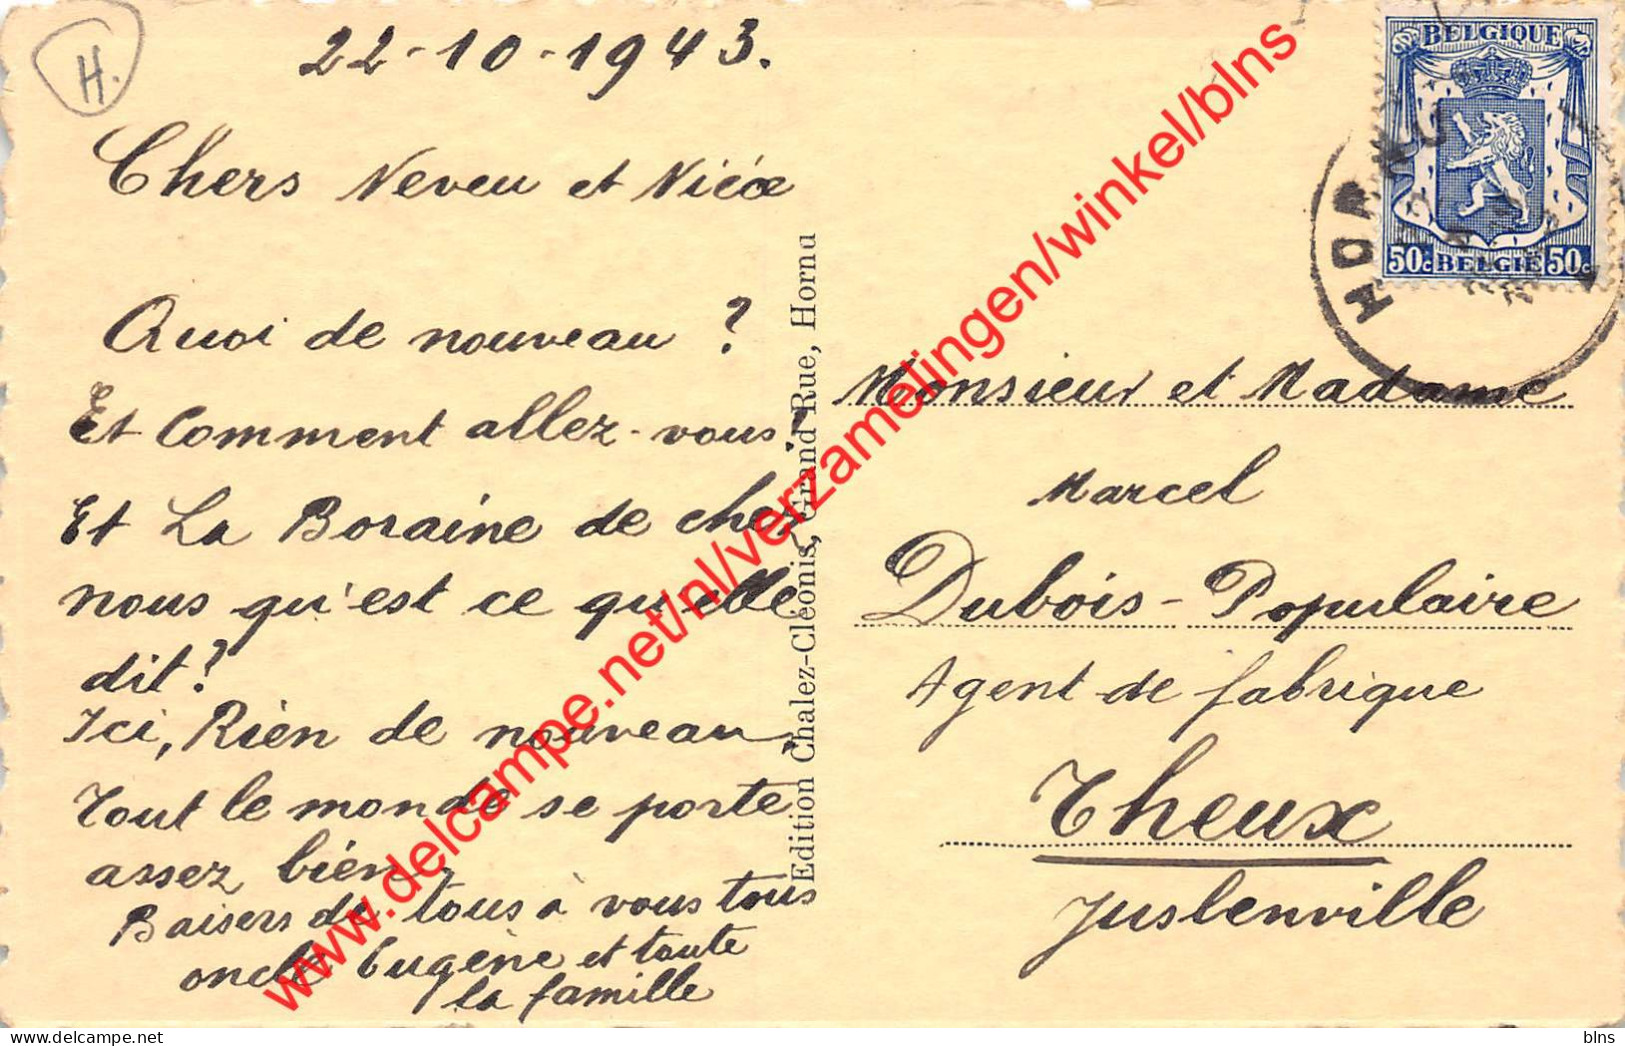 H.
22-10-1943.
Chers Neveu et Nièce
Quoi de nouveau ?
Et Comment allez-vous?
Et La Boraine de chez
nous qu'est ce qu'elle
dit?
Ici, Rien de nouveau,
Tout le monde se porte
assez bien
Baisers de tous à vous tous
oncle Eugène et toute
la famille
Edition Chalez-Cléonis, Grand'Rue, Hornu
BELGIQUE
50c BELGIE 50c
HORNU
Monsieur et Madame
Marcel
Dubois-Populaire
Agent de fabrique
Theux
Juslenville
www.delcampe.net/nl/verzamelingen/winkel/blns
blns